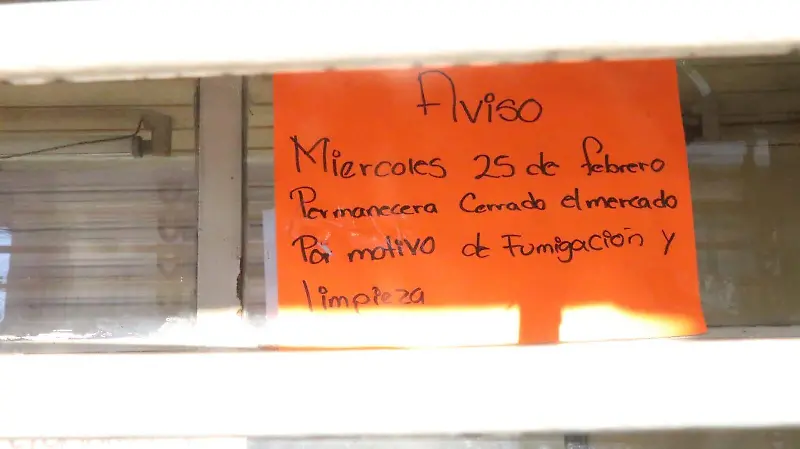 Aviso
Miercoles 25 de febrero
Permanecera Cerrado el mercado
Por motivo de Fumigación y
limpieza